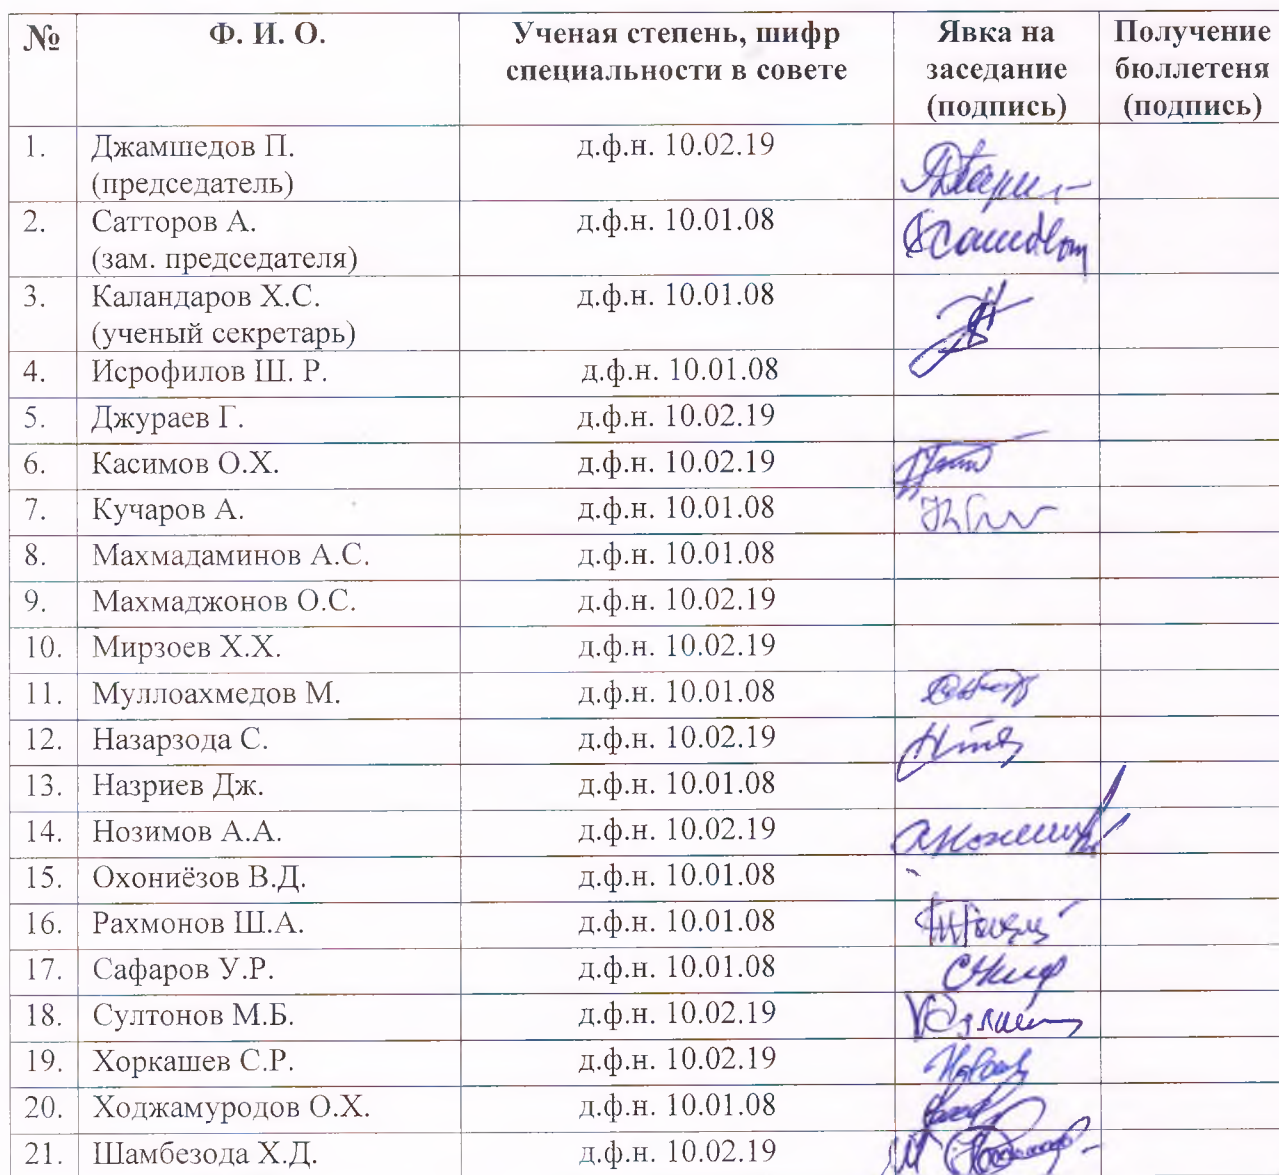 № Ф. И. О. Ученая степень, шифр специальности в совете Явка на заседание (подпись) Получение бюллетеня (подпись)
1. Джамшедов П. д.ф.н. 10.02.19
(председатель)
2. Сатторов А. д.ф.н. 10.01.08
(зам. председателя)
3. Каландаров Х.С. д.ф.н. 10.01.08
(ученый секретарь)
4. Исрофилов Ш. Р. д.ф.н. 10.01.08
5. Джураев Г. д.ф.н. 10.02.19
6. Касимов О.Х. д.ф.н. 10.02.19
7. Кучаров А. д.ф.н. 10.01.08
8. Махмадаминов А.С. д.ф.н. 10.01.08
9. Махмаджонов О.С. д.ф.н. 10.02.19
10. Мирзоев Х.Х. д.ф.н. 10.02.19
11. Муллоахмедов М. д.ф.н. 10.01.08
12. Назарзода С. д.ф.н. 10.02.19
13. Назриев Дж. д.ф.н. 10.01.08
14. Нозимов А.А. д.ф.н. 10.02.19
15. Охониёзов В.Д. д.ф.н. 10.01.08
16. Рахмонов Ш.А. д.ф.н. 10.01.08
17. Сафаров У.Р. д.ф.н. 10.01.08
18. Султонов М.Б. д.ф.н. 10.02.19
19. Хоркашев С.Р. д.ф.н. 10.02.19
20. Ходжамуродов О.Х. д.ф.н. 10.01.08
21. Шамбезода Х.Д. д.ф.н. 10.02.19